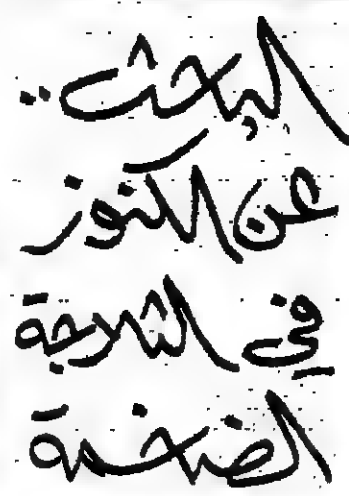 البحث..
عن الكنوز
في الثلاجة
الضخمة